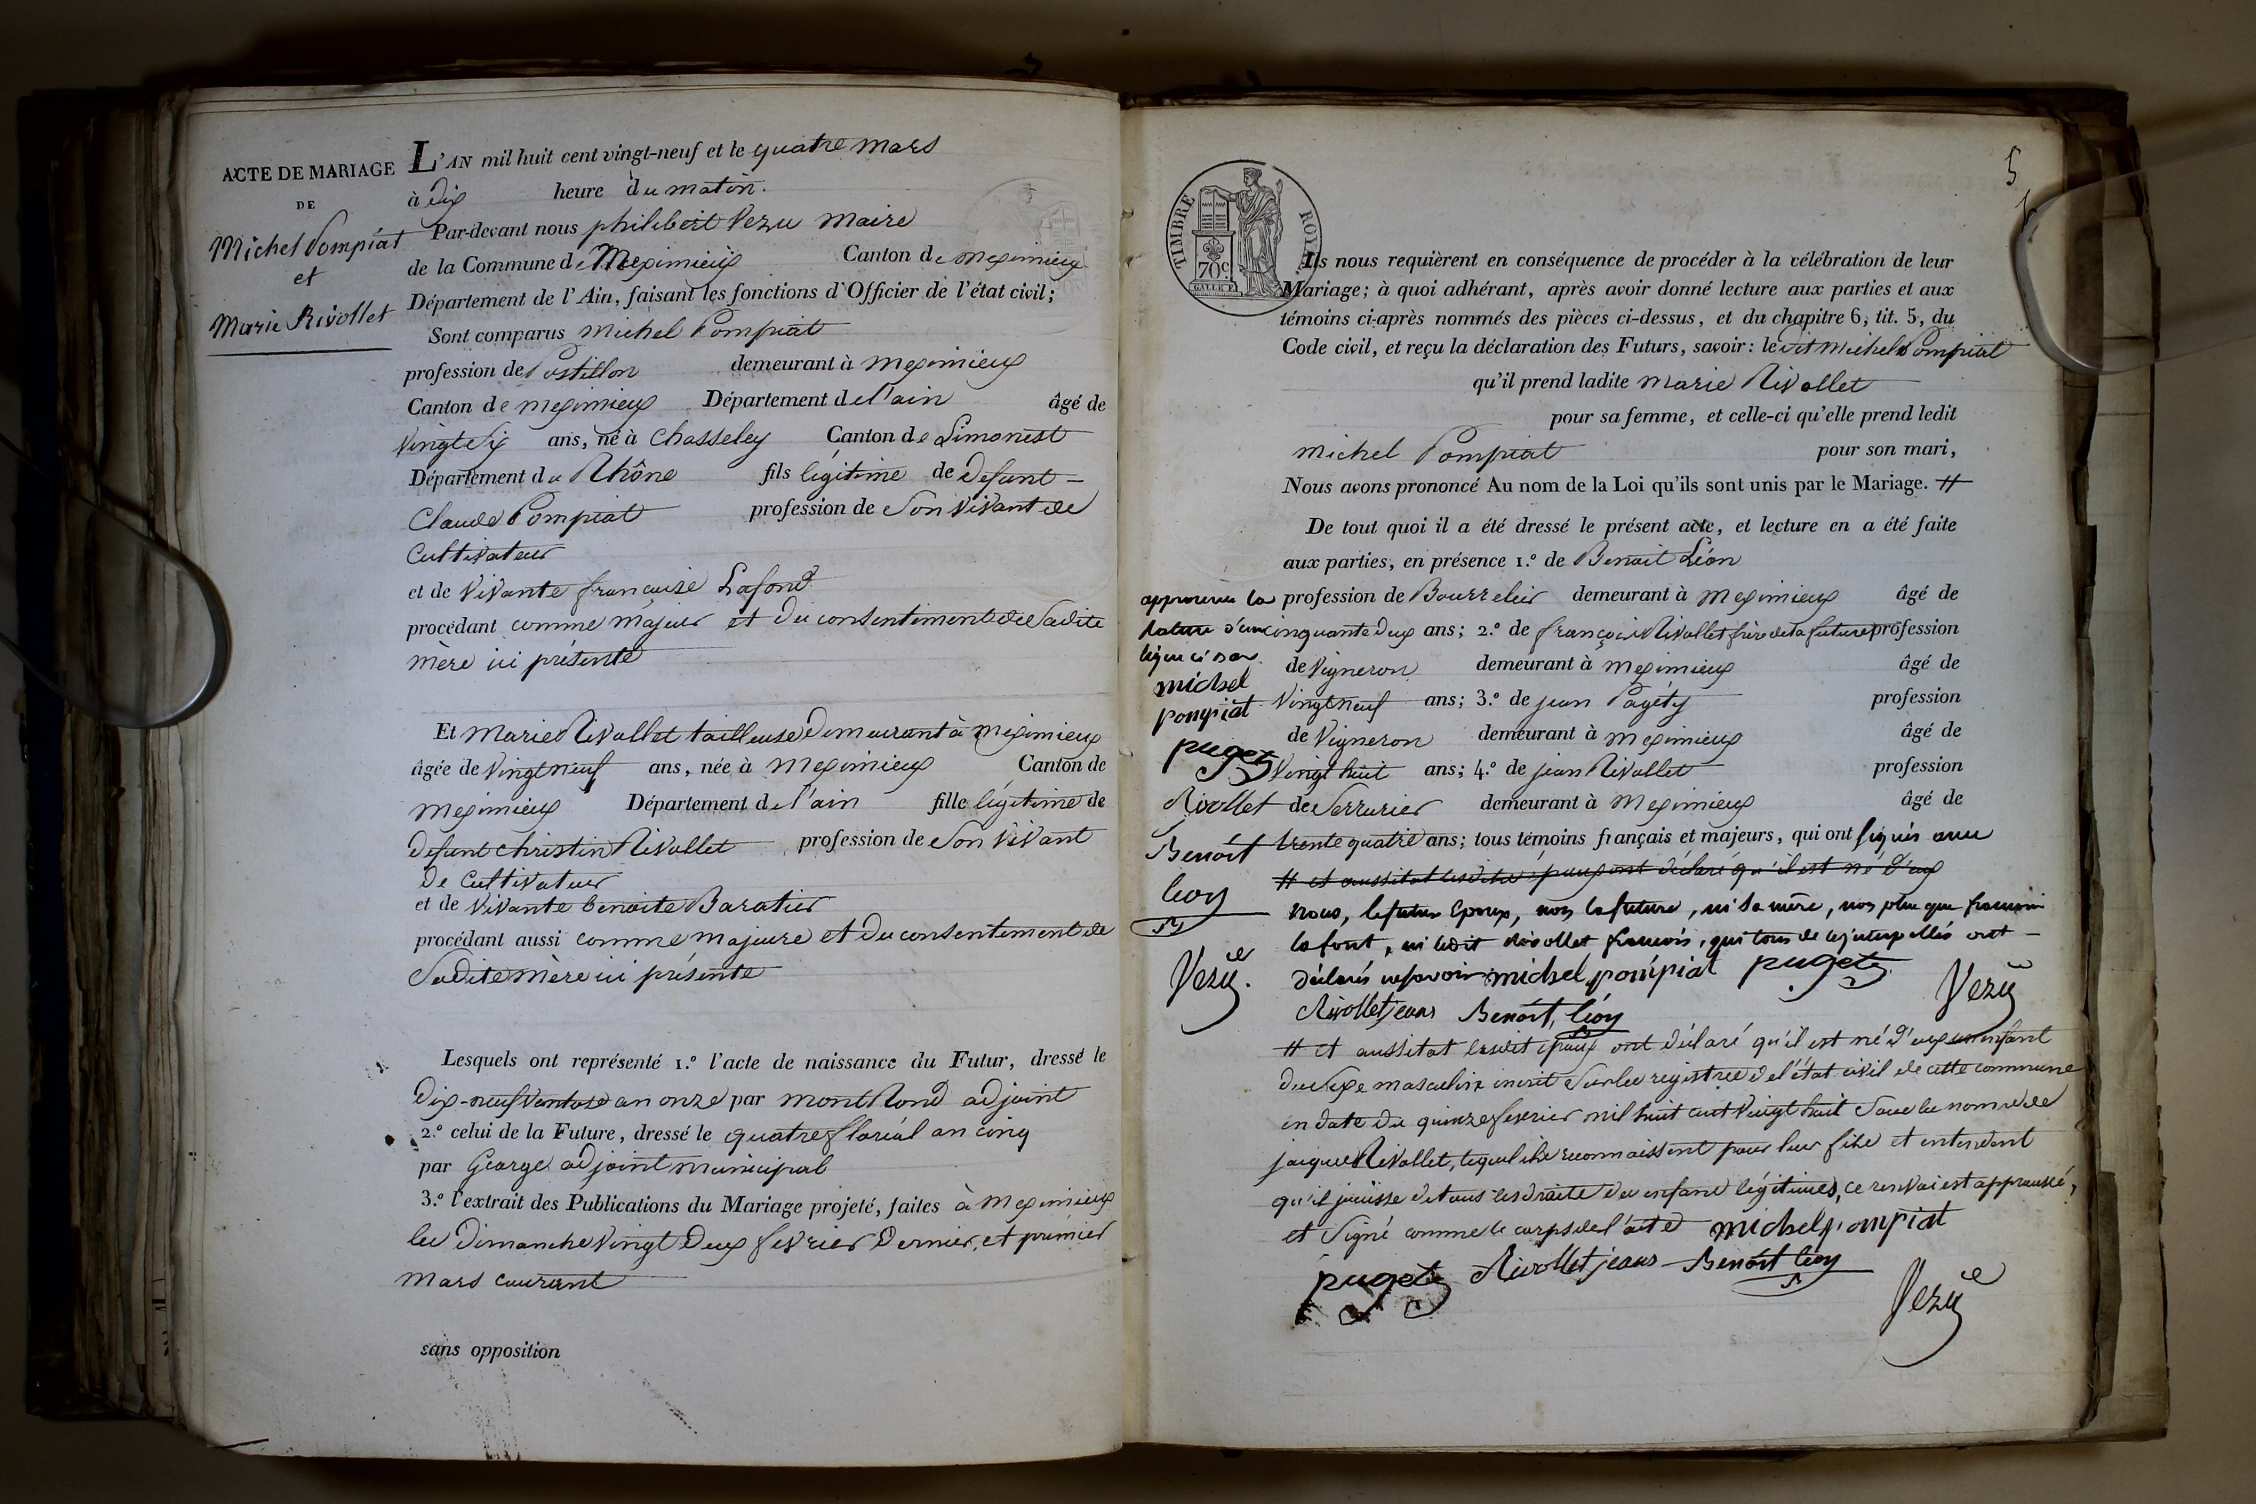 ACTE DE MARIAGE
DE
Michel Pompiat
et
Marie Rivollet
L'AN mil huit cent vingt-neuf et le quatre mars
à dix heure du matin.
Par-devant nous philibert Vezu Maire
de la Commune de Meximieux Canton de meximieux
Département de l'Ain, faisant les fonctions d'Officier de l'état civil;
Sont comparus Michel Pompiat
profession de Postillon demeurant à meximieux
Canton de meximieux Département de l'ain âgé de
Vingt Six ans, né à Chasseley Canton de Limonest
Département du Rhône fils légitime de defunt
Claude Pompiat profession de Son Vivant de
Cultivateur
et de Vivante francoise Lafond
procédant comme majeur et du consentement de Sadite
mère ici présente
Et Marie Rivollet tailleuse demeurant à meximieux
âgée de Vingt neuf ans, née à meximieux Canton de
meximieux Département de l'ain fille légitime de
defunt christin Rivollet profession de Son Vivant
De Cultivateur
et de Vivante benoite Baratier
procédant aussi comme majeure et du consentement de
Sadite mère ici présente
Lesquels ont représenté 1.º l'acte de naissance du Futur, dressé le
Dix-neuf Ventose an onze par mont Rond adjoint
2.º celui de la Future, dressé le quatre floréal an cinq
par George adjoint municipal
3.º l'extrait des Publications du Mariage projeté, faites à meximieux
les Dimanche Vingt Deux fevrier Dernier, et prémier
Mars courant
sans opposition
5
TIMBRE ROYAL
70c.
Ils nous requièrent en conséquence de procéder à la célébration de leur
Mariage; à quoi adhérant, après avoir donné lecture aux parties et aux
témoins ci-après nommés des pièces ci-dessus, et du chapitre 6, tit. 5, du
Code civil, et reçu la déclaration des Futurs, savoir: ledit Michel Pompiat
qu'il prend ladite Marie Rivollet
pour sa femme, et celle-ci qu'elle prend ledit
michel Pompiat pour son mari,
Nous avons prononcé Au nom de la Loi qu'ils sont unis par le Mariage. #
De tout quoi il a été dressé le présent acte, et lecture en a été faite
aux parties, en présence 1.º de Benoit Léon
profession de Bourrelier demeurant à Meximieux âgé de
cinquante Deux ans; 2.º de françois Rivollet frère de la future profession
de Vigneron demeurant à meximieux âgé de
Vingt neuf ans; 3.º de jean profession
de Vigneron demeurant à meximieux âgé de
Vingt huit ans; 4.º de jean Rivollet profession
de Serrurier demeurant à Meximieux âgé de
trente quatre ans; tous témoins français et majeurs, qui ont signés avec
# et aussitot lesdits époux ont déclaré qu'il est né d'eux
nous, le futur Epoux, non la future, ni sa mère, non plus que francoise
lafont, ni ledit Rivollet francois, qui tous de ce interpellés ont
déclarés ne savoir michel pompiat puget
Rivollet jean Benoît léon Vezu
# et aussitot lesdits époux ont déclaré qu'il est né d'eux un enfant
du Sexe masculin inscrit Sur les registres de l'état civil de cette commune
en date du quinze fevrier mil huit cent Vingt huit Sous les noms de
jacques Rivollet, lequel ils reconnaissent pour leur fils et entendent
qu'il jouisse de tous les droits des enfans légitimes, ce renvoi est approuvé,
et Signé comme le corps de l'acte michel pompiat
puget Rivollet jean Benoît léon
Vezu
michel
pompiat
puget
Rivollet
Benoît
léon
Vezu.